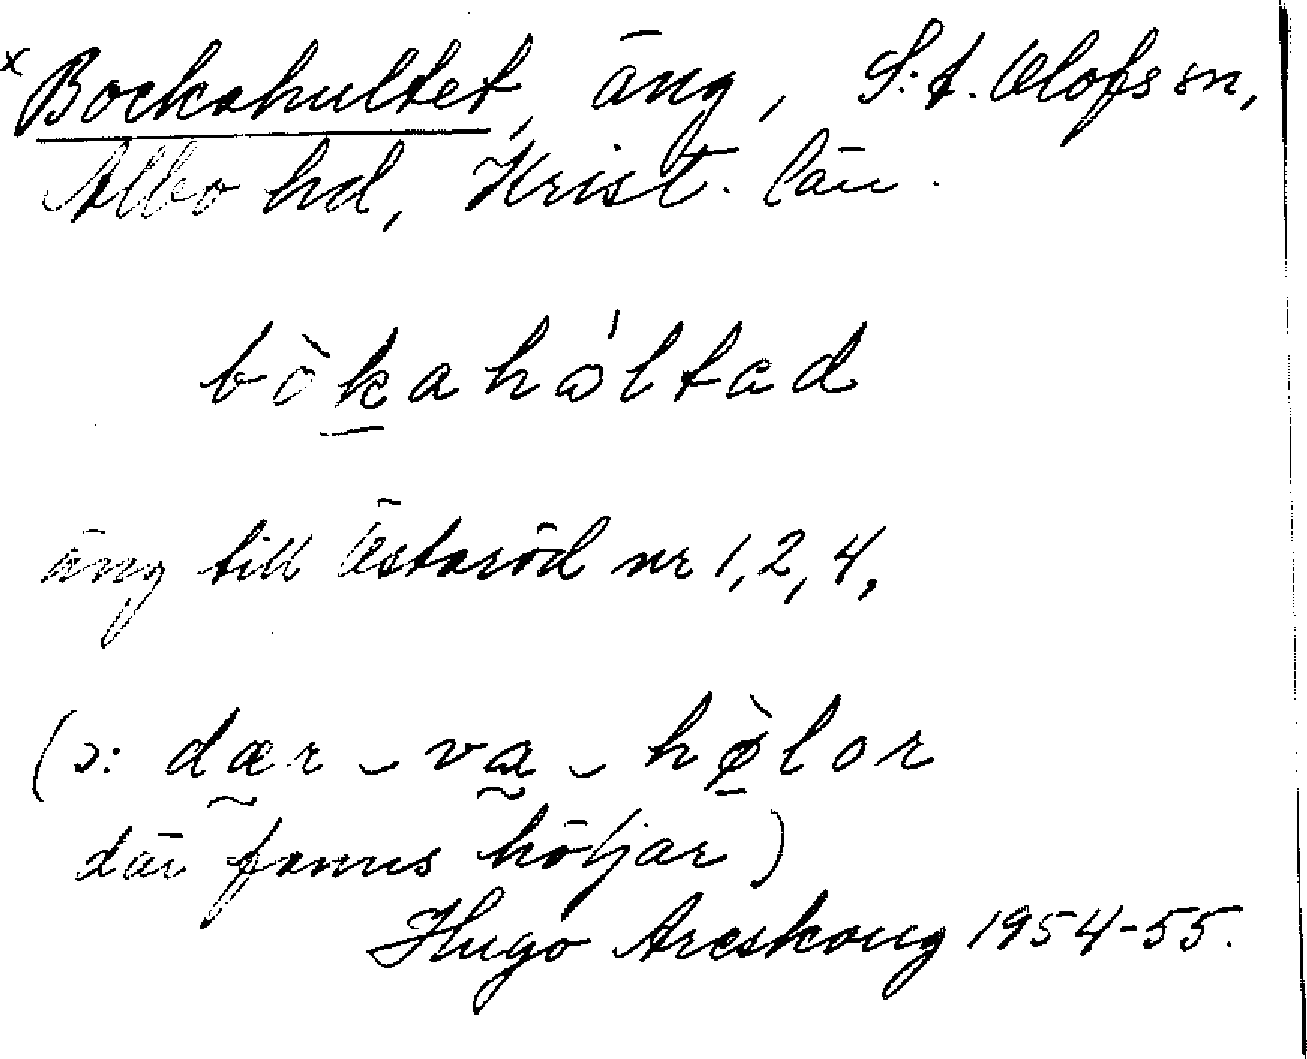 x Bockahultet, äng, S:t. Olofs sn,
Albo hd, Krist. län.
bòkahóltad
äng till Östaröd nr 1, 2, 4,
(ɔ: dær – va – hø̀lor
där fanns höljar)
Hugo Areskoug 1954-55.